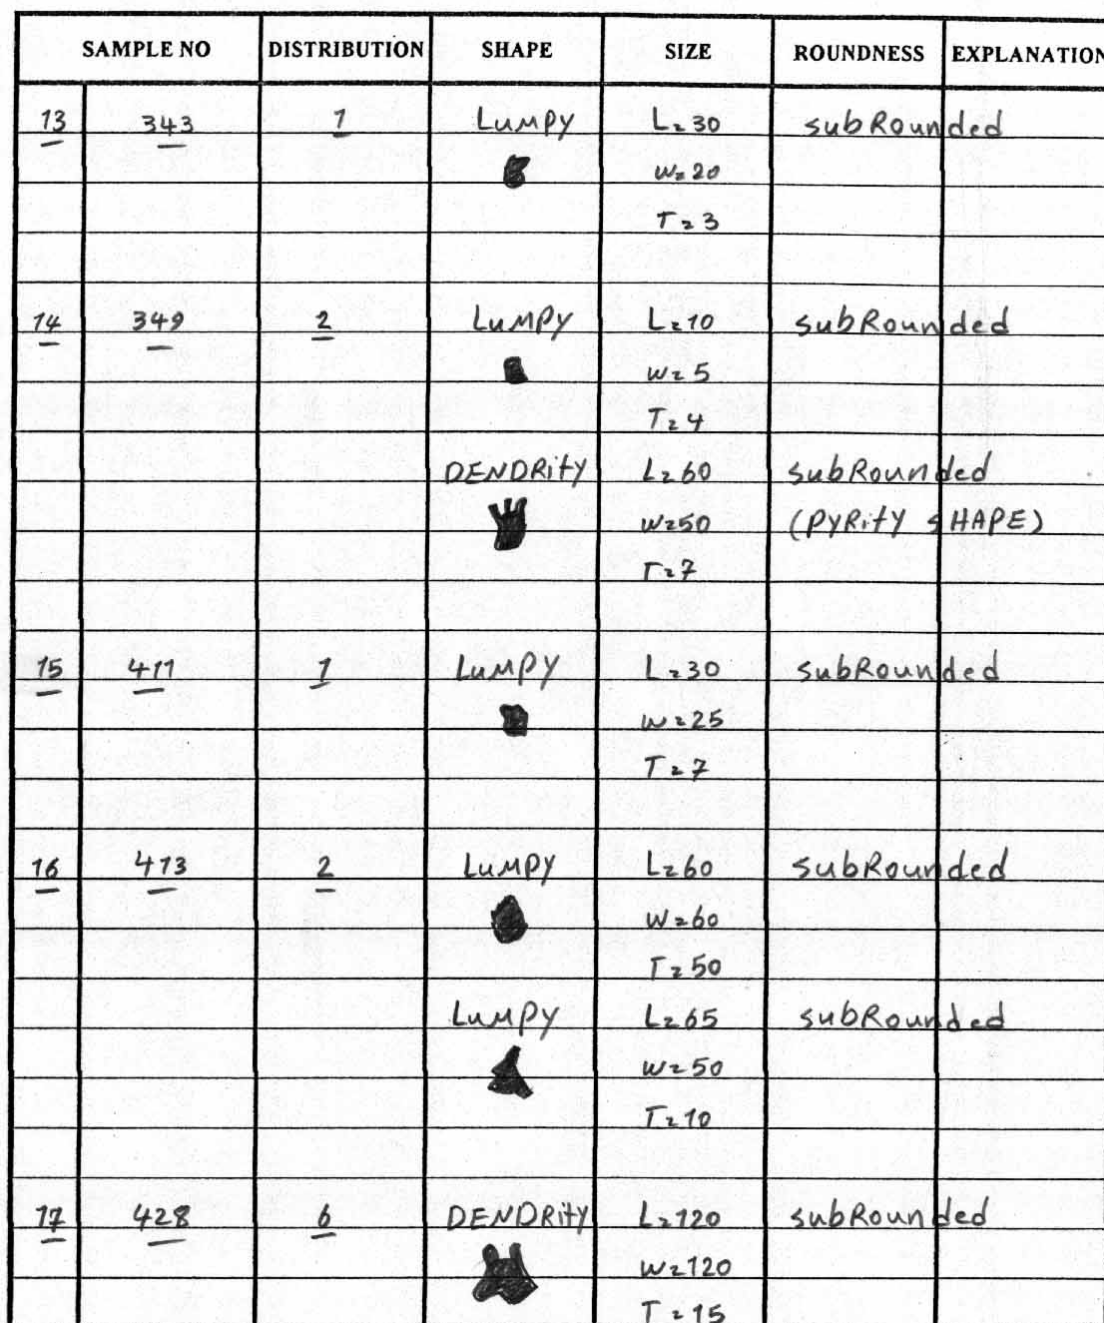 SAMPLE NO DISTRIBUTION SHAPE SIZE ROUNDNESS EXPLANATION
13 343 1 LUMPY L=30 subRounded
W=20
T=3
14 349 2 LUMPY L=10 subRounded
W=5
T=4
DENDRitY L=60 subRounded
W=50 (PYRitY SHAPE)
T=7
15 411 1 LUMPY L=30 subRounded
W=25
T=7
16 413 2 LUMPY L=60 subRounded
W=60
T=50
LUMPY L=65 subRounded
W=50
T=10
17 428 6 DENDRitY L=120 subRounded
W=120
T=15